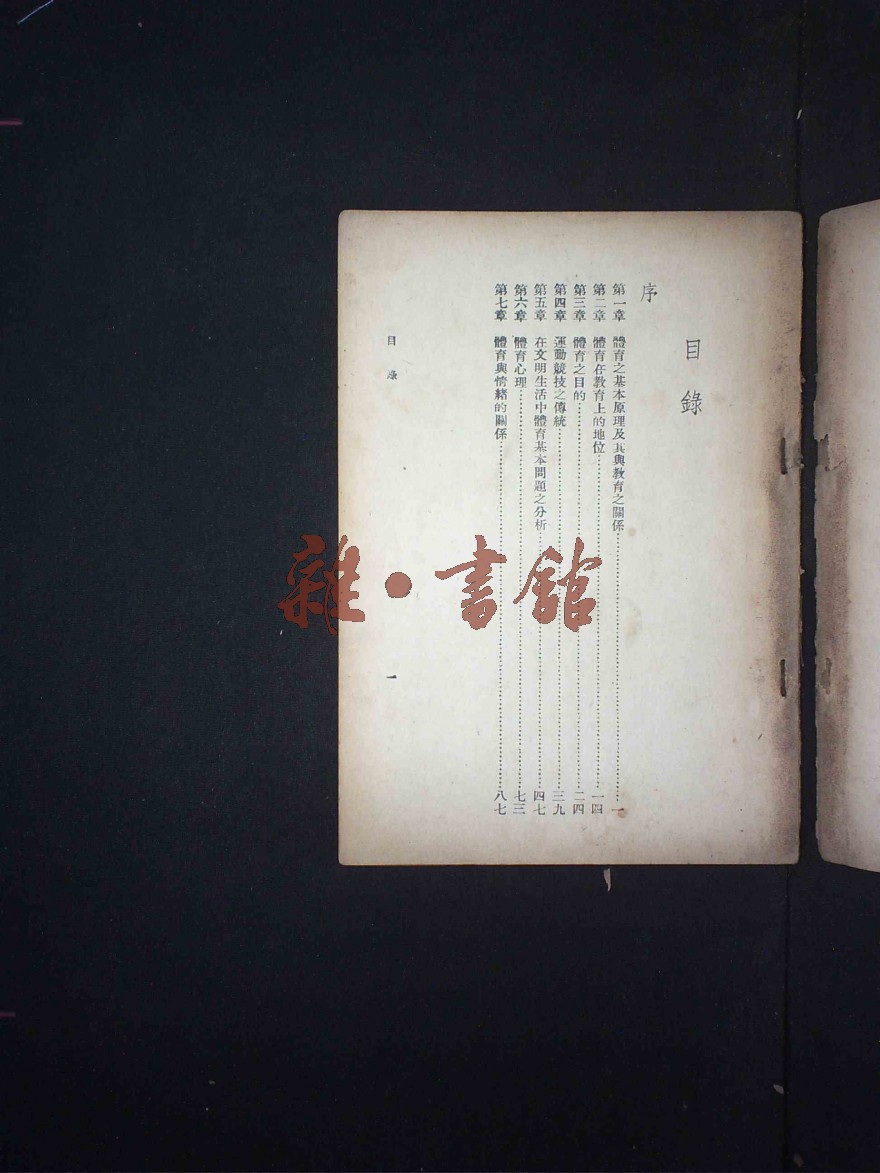 目錄
序
第一章　體育之基本原理及其與教育之關係……一
第二章　體育在教育上的地位……一四
第三章　體育之目的……二四
第四章　運動競技之傳統……三九
第五章　在文明生活中體育基本問題之分析……四七
第六章　體育心理……七三
第七章　體育與情緒的關係……八七
目錄　一
雜·書館